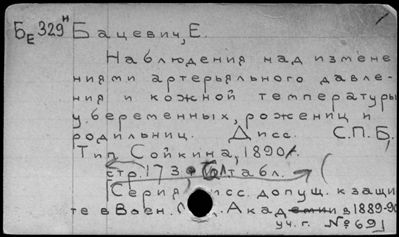 Бе 329н Бацевич, Е.
Наблюдения над измене
ниями артерьяльного давле-
ния и кожной температуры
у беременных, рожениц и
родильниц. Дисс. С.П.Б.
Тип. Сойкина, 1890.
стр. 173 табл.
(Серия дисс. допущ. к защи
те в Воен. Акад в 1889-90
уч. г. № 69)